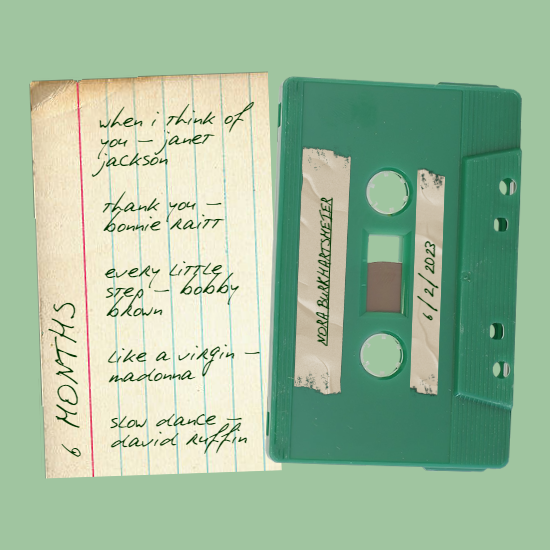 when i think of
you – janet
jackson
thank you –
bonnie raitt
every little
step – bobby
brown
like a virgin –
madonna
slow dance –
david ruffin
6 MONTHS
NORA BURKHARTSMEIER
6/2/2023